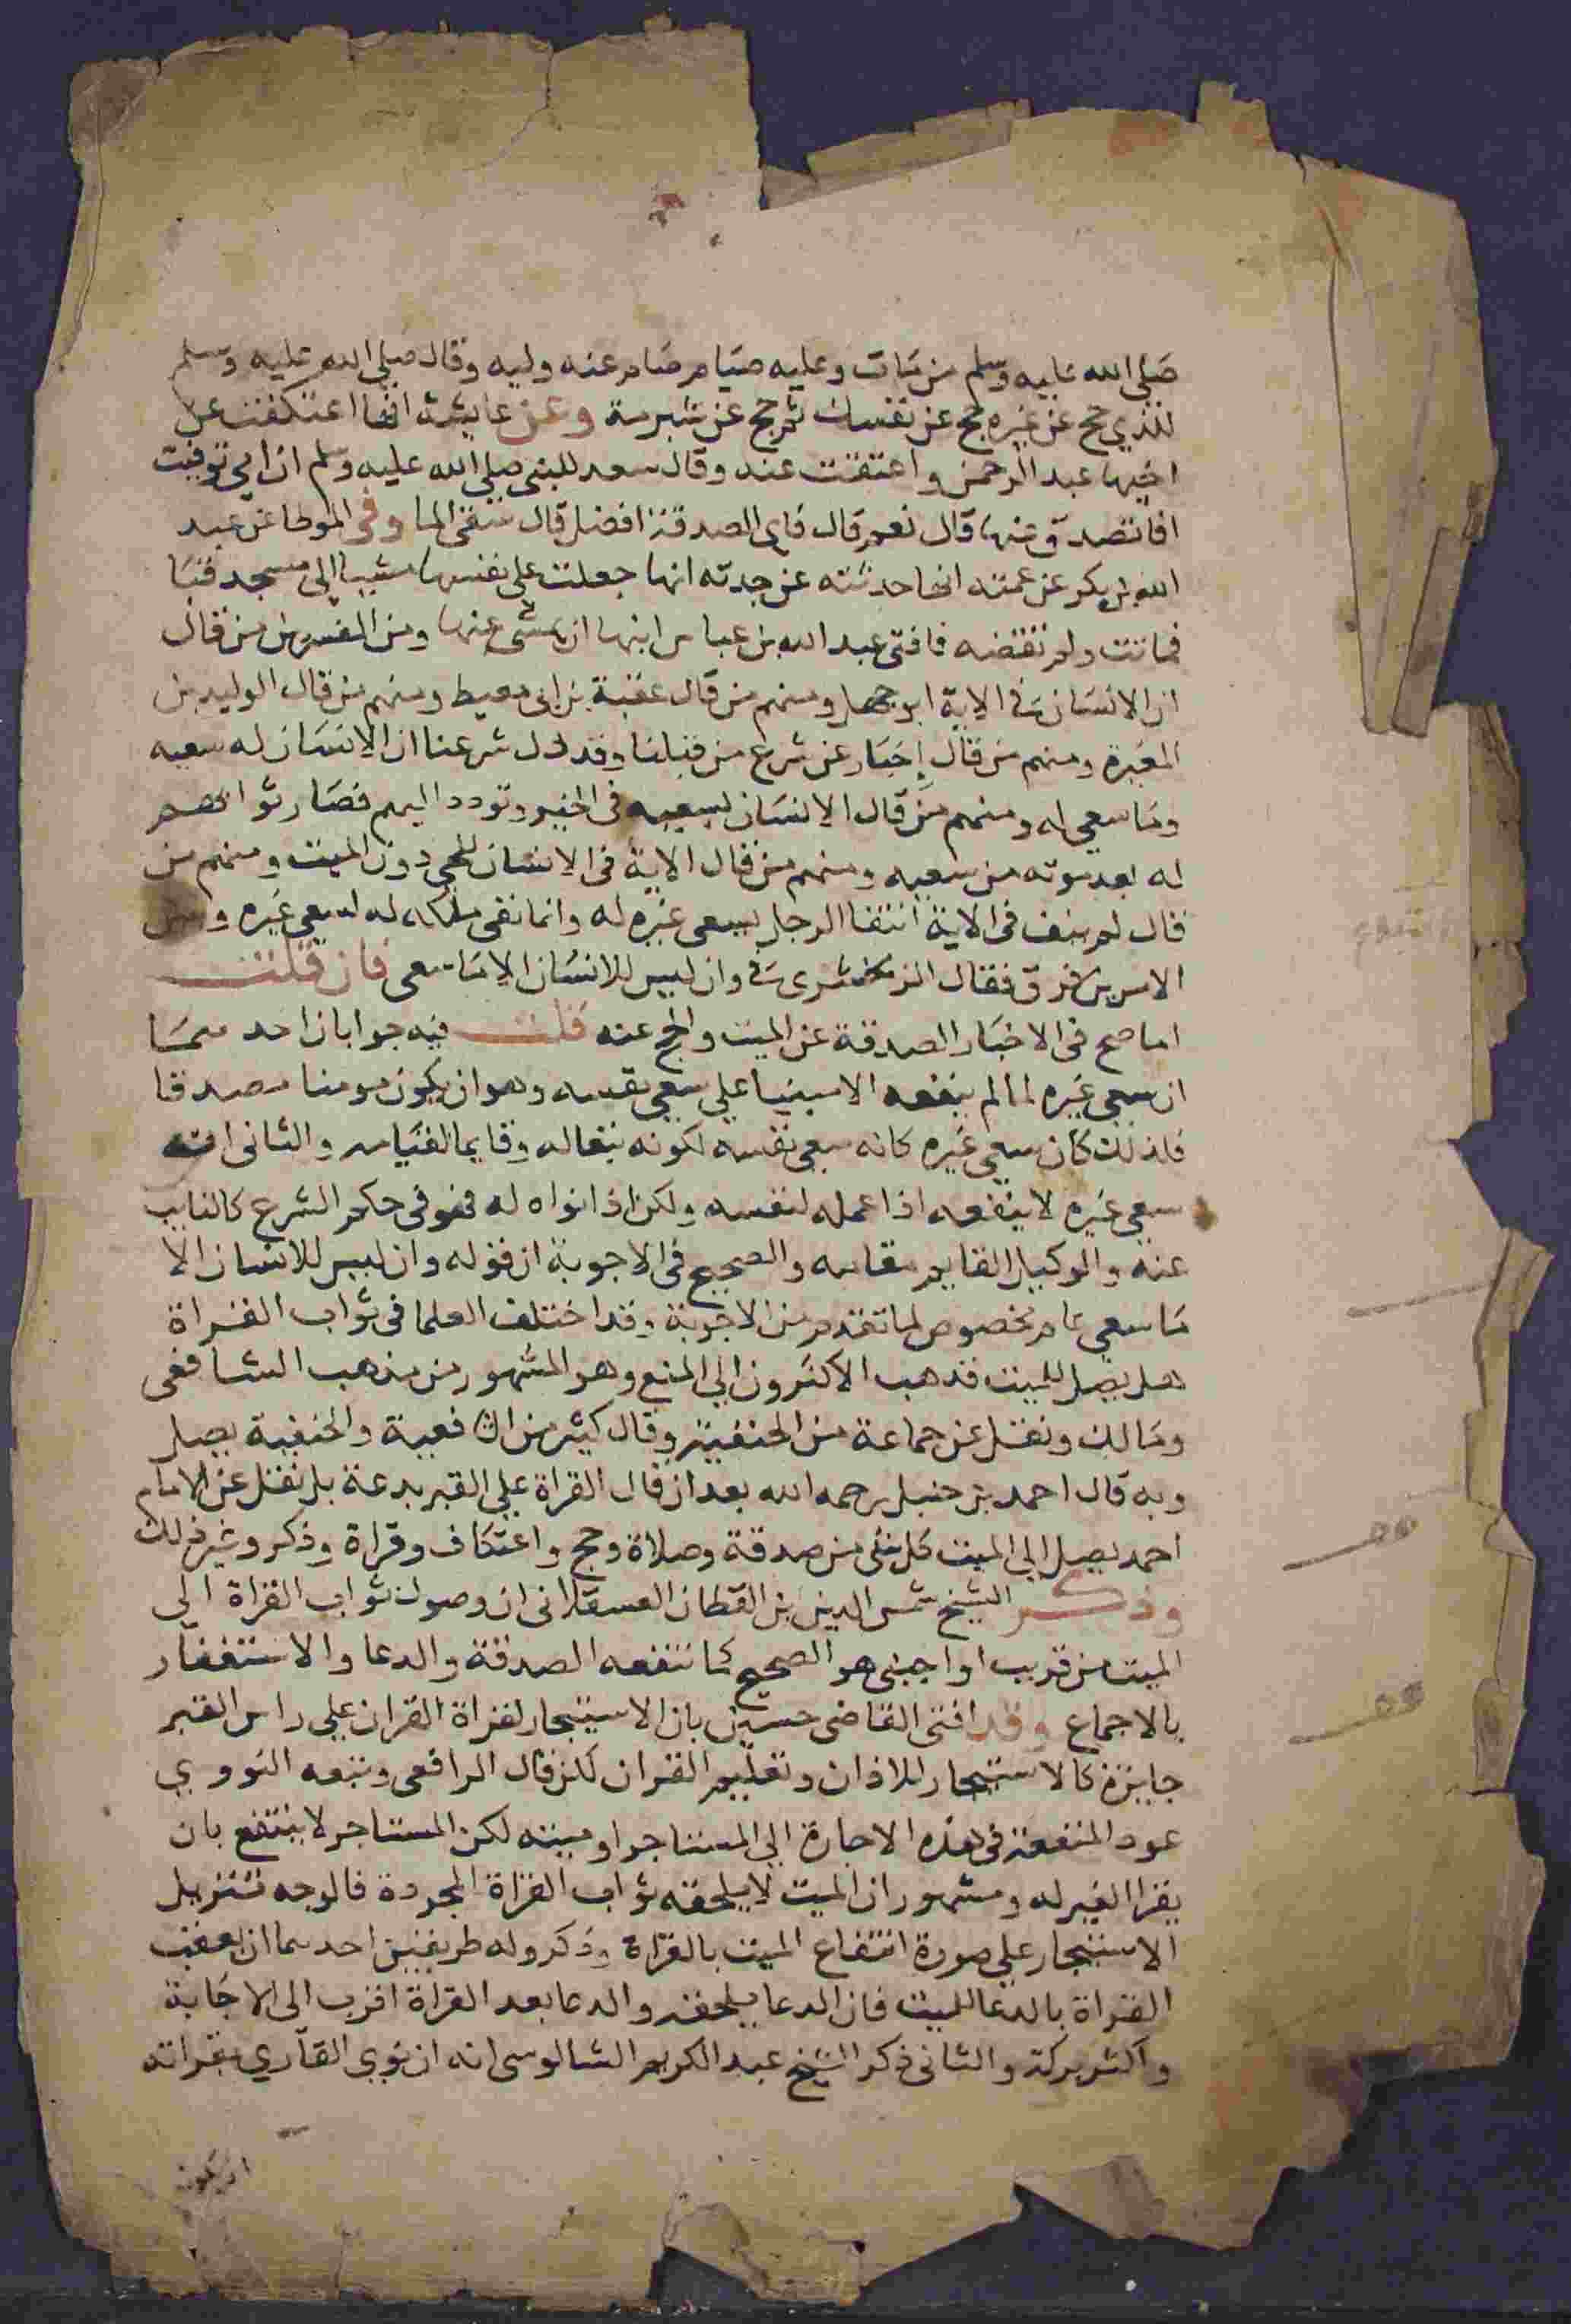 صلى الله عليه وسلم من مات وعليه صيام صام عنه وليه وقال صلى الله عليه وسلم
للذي حج عن غيره حج عن نفسك ثم حج عن شبرمة وعن عايشة انها اعتكفت عن
اخيها عبد الرحمن واعتقت عنه وقال سعد للنبي صلى الله عليه وسلم ان امي توفيت
افاتصدق عنها قال نعم قال فاي الصدقة افضل قال سقي الما وفي الموطا عن عبد
الله بن بكر عن عمته انها حدثته عن جدته انها جعلت على نفسها مشيا الى مسجد قبا
فماتت ولم تقضه فافتى عبد الله بن عباس ابنها ان يمشي عنها ومن المفسرين من قال
ان الانسان في الاية ابو جهل ومنهم من قال عقبة بن ابي معيط ومنهم من قال الوليد بن
المغيرة ومنهم من قال إخبار عن شرع من قبلنا وقد دل شرعنا ان الانسان له سعيه
وما سعي له ومنهم من قال الانسان بسعيه في الخير وتودد اليهم فصار ثوابهم
له بعد موته من سعيه ومنهم من قال الاية في الانسان للحي دون الميت ومنهم من
قال لم ينف في الاية انتفا الرجل بسعي غيره له وانما نفى ملكه له لسعي غيره وبين
الامرين فرق فقال الزمخشري في وان ليس للانسان الا ما سعى فان قلت
اما صح في الاخبار الصدقة عن الميت والحج عنه قلت فيه جوابان احدهما
ان سعي غيره لما لم ينفعه الا مبنيا على سعي نفسه وهو ان يكون مومنا مصدقا
فلذلك كان سعي غيره كانه سعي نفسه لكونه تبعا له وقايما لقيامه والثاني انه
سعي غيره لا ينفعه اذا عمله لنفسه ولكن اذا نواه له فهو في حكم الشرع كالنايب
عنه والوكيل القايم مقامه والصحيح في الاجوبة ان قوله وان ليس للانسان الا
ما سعى عام مخصوص لما تقدم من الاجوبة وقد اختلف العلما في ثواب القراة
هل يصل للميت فذهب الاكثرون الى المنع وهو المشهور من مذهب الشافعي
ومالك ونقل عن جماعة من الحنفية وقال كثير من الشافعية والحنفية يصل
وبه قال احمد بن حنبل رحمه الله بعد ان قال القراة على القبر بدعة بل نقل عن الامام
احمد يصل الى الميت كل شي من صدقة وصلاة وحج واعتكاف وقراة وذكر وغير ذلك
وذكر الشيخ شمس الدين بن القطان العسقلاني ان وصول ثواب القراة الى
الميت من قريب او اجنبي هو الصحيح كما تنفعه الصدقة والدعا والاستغفار
بالاجماع وقد افتى القاضي حسين بان الاستيجار لقراة القران على راس القبر
جايزة كالاستيجار للاذان وتعليم القران لكن قال الرافعي وتبعه النووي
عود المنفعة في هذه الاجارة الى المستاجر او ميته لكن المستاجر لا ينتفع بان
يقرا الغير له ومشهور ان الميت لا يلحقه ثواب القراة المجردة فالوجه تنزيل
الاستيجار على صورة انتفاع الميت بالقراة وذكر وله طريقين احدهما ان يعقب
القراة بالدعا للميت فان الدعا يلحقه والدعا بعد القراة اقرب الى الاجابة
واكثر بركة والثاني ذكر الشيخ عبد الكريم الشالوسي انه ان نوي القاري بقراته
ان يكون